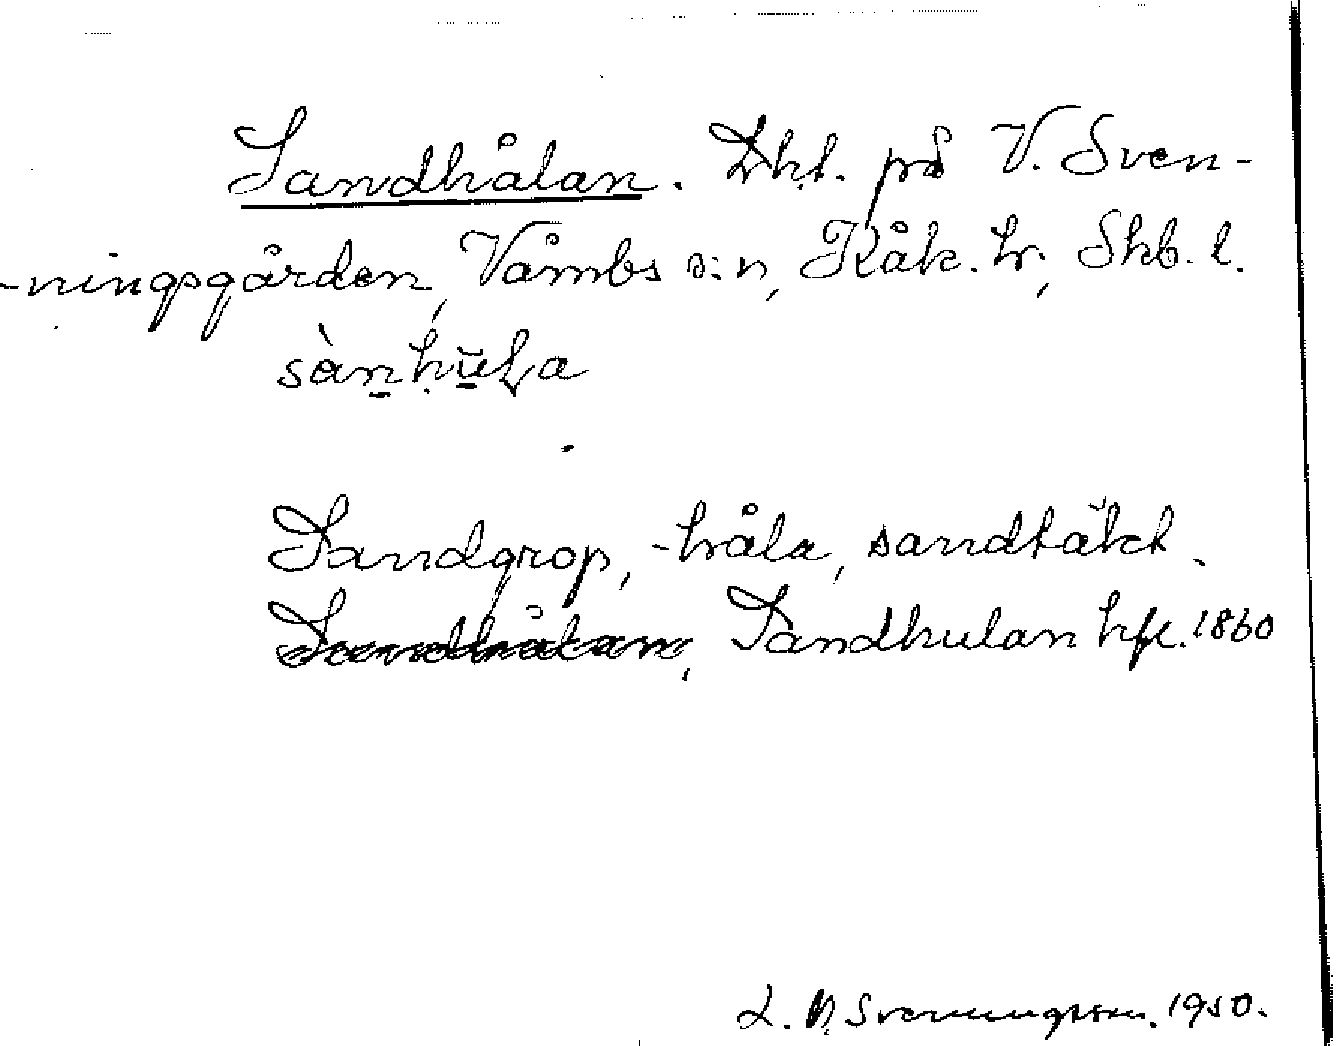 Sandhålan. Lht. på V. Sven-
-ningsgården, Våmbs s:n, Kåk. hr, Skb. l.
sàn̲hu̲La
Sandgrop, -håla, sandtäkt.
Sandhålan, Sandhulan hfl. 1860
L. N. Svenningsson. 1950.